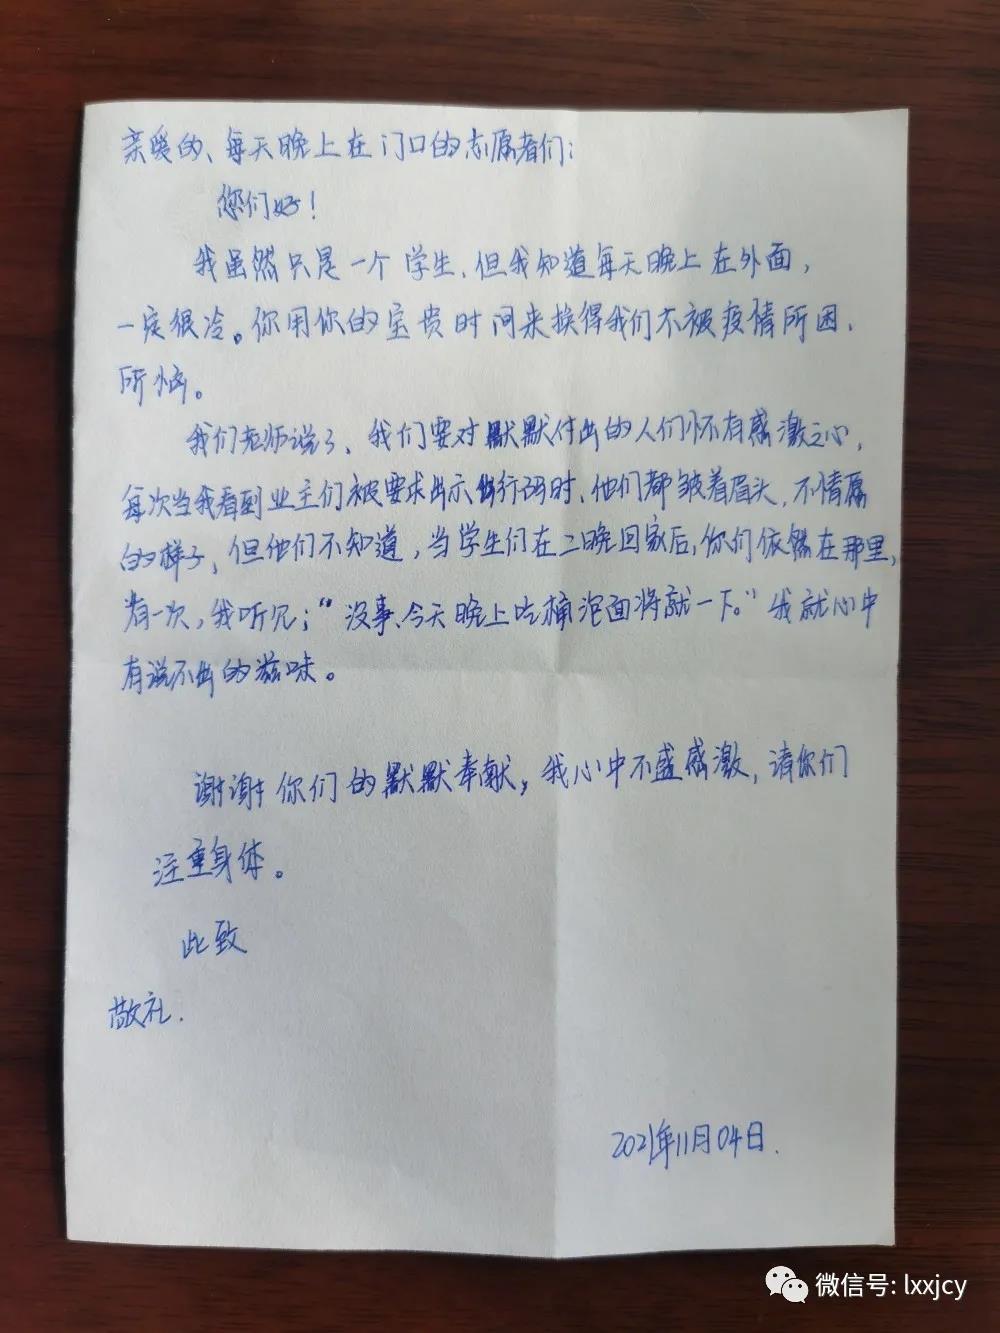 亲爱的、每天晚上在门口的志愿者们：
您们好！
我虽然只是一个学生，但我知道每天晚上在外面，
一定很冷。你用你的宝贵时间来换得我们不被疫情所困、
所恼。
我们老师说了、我们要对默默付出的人们怀有感激之心，
每次当我看到业主们被要求出示行码时、他们都皱着眉头，不情愿
的样子，但他们不知道，当学生们在二晚回家后，你们依然在那里，
有一次，我听见：“没事、今天晚上吃桶泡面将就一下。”我就心中
有说不出的滋味。
谢谢你们的默默奉献，我心中不盛感激，请你们
注重身体。
此致
敬礼.
2021年11月04日.
微信号: lxxjcy